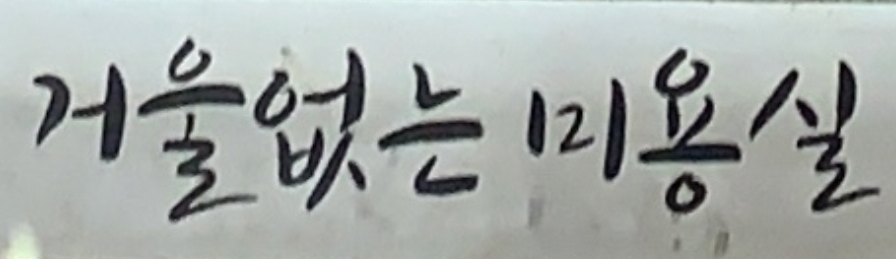 거울없는 미용실